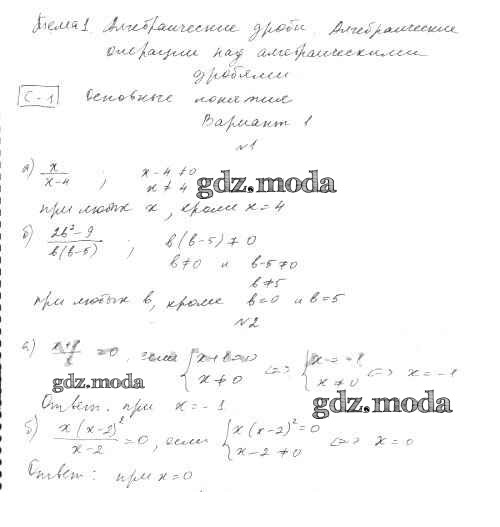 Тема 1. Алгебраические дроби. Алгебраические
операции над алгебраическими
дробями
С-1 Основные понятия
Вариант 1
№1
а) x/(x-4) ; x-4≠0
x≠4
gdz.moda
при любых x, кроме x=4
б) (2b²-9)/(b(b-5)) ; b(b-5)≠0
b≠0 и b-5≠0
b≠5
при любых b, кроме b=0 и b=5
№2
а) =0, если { x≠0 <=> { x≠0 <=> x=-1
gdz.moda
Ответ. при x=-1
gdz.moda
б) x(x-2)²/(x-2)=0, если { x(x-2)²=0 x-2≠0 <=> x=0
Ответ: при x=0